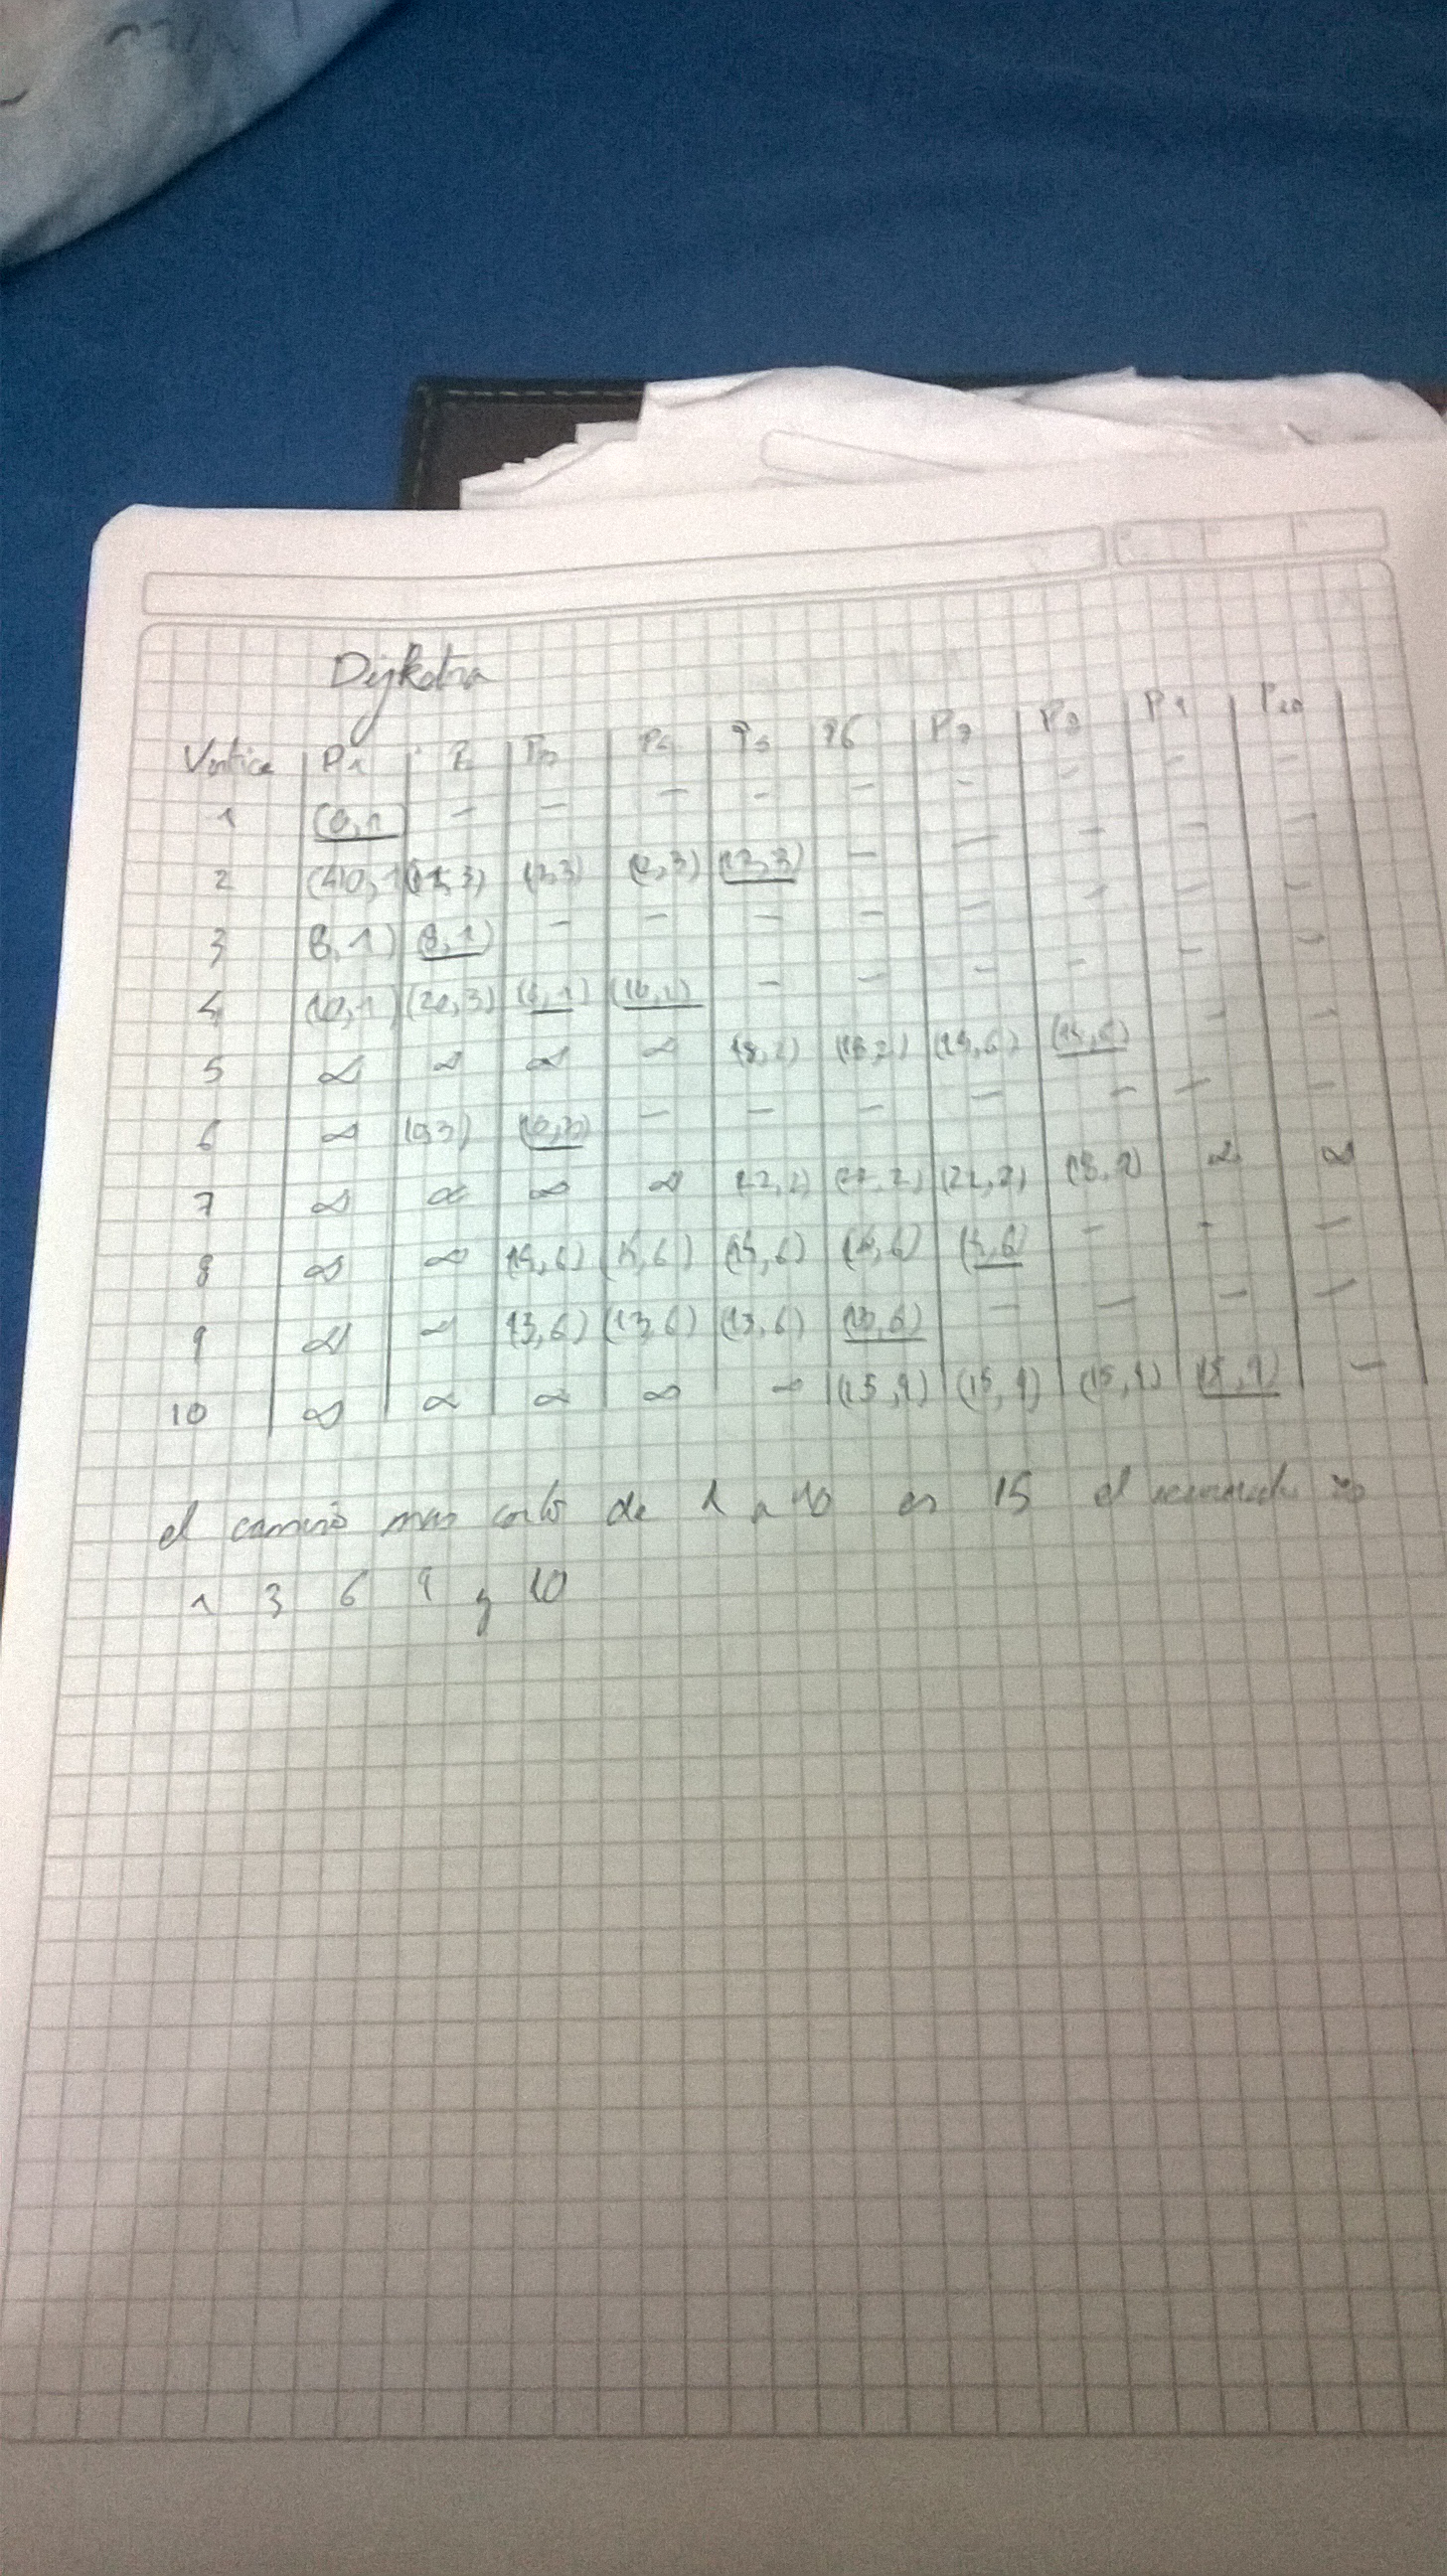 Dijkstra
Vertice P1 P2 P3 P4 P5 P6 P7 P8 P9 P10
1 (0,1) - - - - - - - - -
2 (40,1) (3) (12,3) (12,3) (12,3) - - - - -
3 (8,1) (8,1) - - - - - - - -
4 (10,1) (20,3) (10,1) - - - - - -
5 ∞ ∞ ∞ ∞ (18,2) (18,2) (14,6) (14,6) - -
6 ∞ (9,3) (9,3) - - - - - - -
7 ∞ ∞ ∞ ∞ (22,2) (22,2) (22,2) (18,2) ∞ ∞
8 ∞ ∞ (14,6) (14,6) (14,6) (14,6) (14,6) - - -
9 ∞ ∞ (13,6) (13,6) (13,6) (13,6) - - - -
10 ∞ ∞ ∞ ∞ ∞ (15,9) (15,9) (15,9) (15,9) -
el camino mas corto de 1 a 10 es 15 el
1 3 6 9 y 10